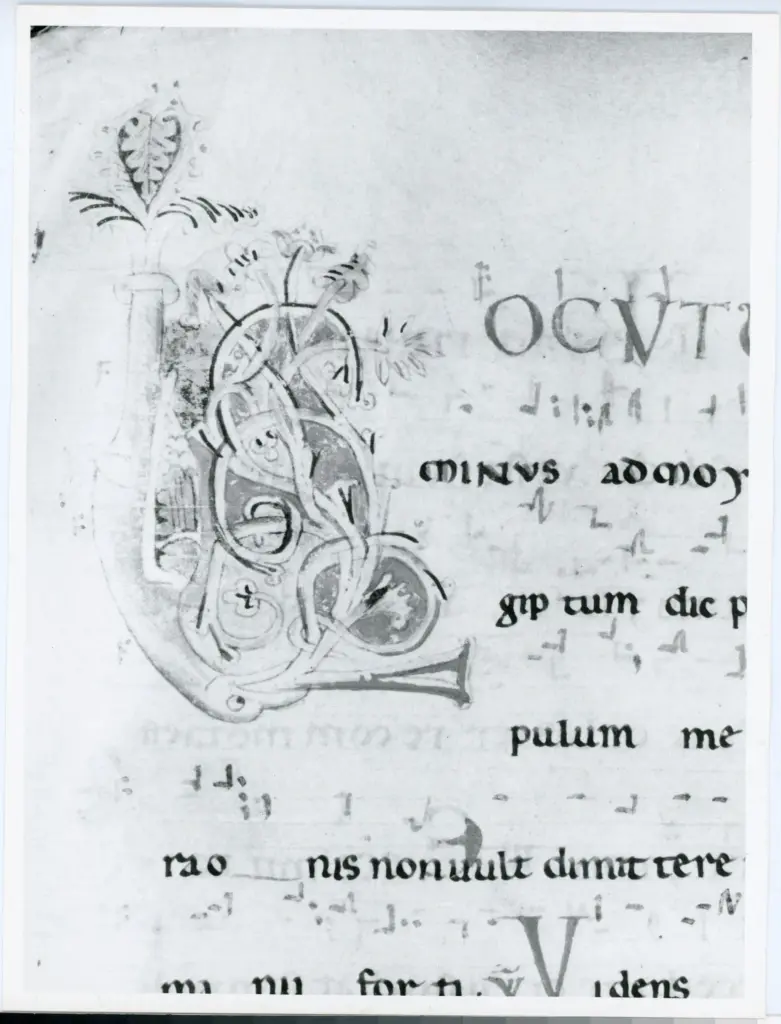 LOCVTU
minus ad moy
gip tum dic p
pulum me
rao nis non uult dimit tere
ma nu for ti. V̄ Videns